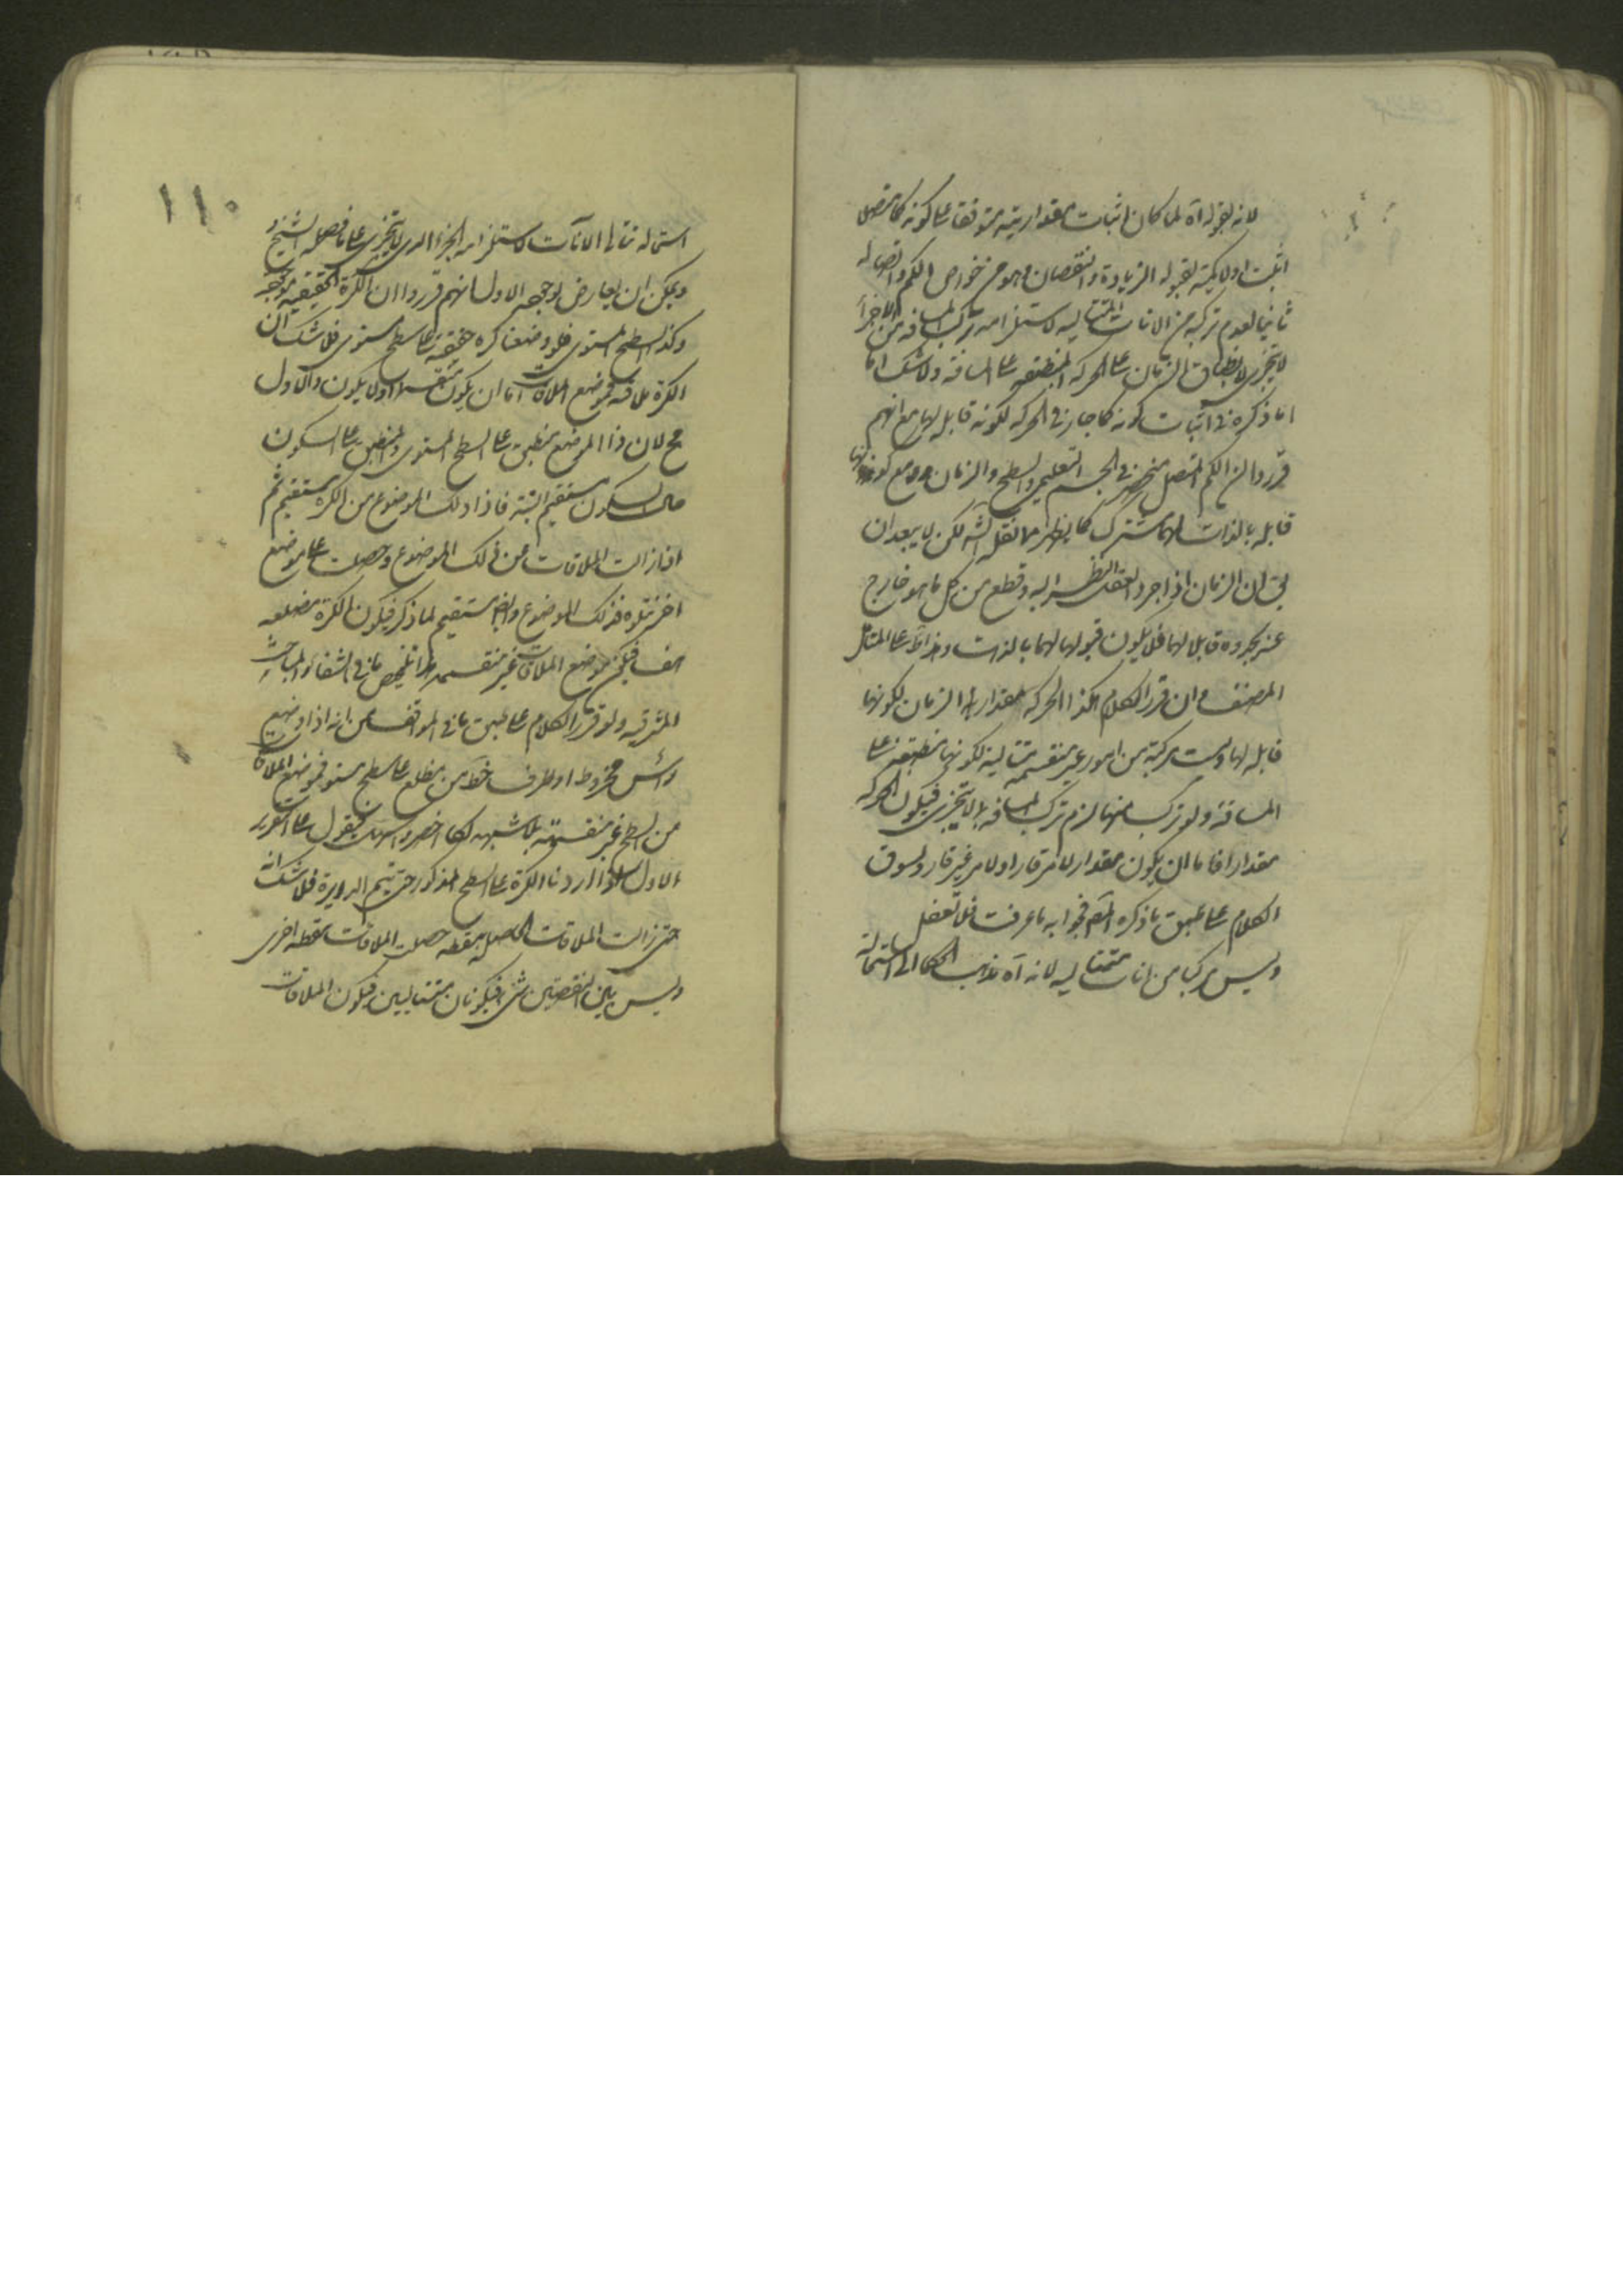 لانه لقبوله آه لما كان اثبات مقداريته متوقفا على كونه كما متصلا
اثبت اولا كميته لقبوله الزيادة والنقصان وهو من خواص الكم واتصاله
ثانيا لعدم تركبه من الانات المتتاليه لاستلزامه تركب المسافة من الاجزاء
لا يتجزى لانطباق الزمان على الحركه المنطبقه على المسافة ولا شك ان
ما ذكره فى اثبات كونه كما جار فى الحركه لكونه قابله لها مع انهم
قرروا ان الكم المتصل منحصر فى الجسم التعليمى والسطح والزمان مع كونها
قابله بالذات لهما كما يظهر مما نقل لكن لا يبعد ان
يق ان الزمان اذا جرد العقل النظر اليه وقطع من كل ما هو خارج
عنه يجده قابلا لهما فلا يكون قبولها لهما بالذات على المتأمل
المصنف وان قرر الكلام هكذا الحركه مقدار الزمان لكونها
قابله لها وليست مركبة من امور غير منقسمة متتالية لكونها منطبقة على
المسافة ولو تركب منها لزم تركب المسافه مما لا يتجزى فيكون الحركه
مقدارا فاما ان يكون مقدار لامر قار او لامر غير قار ونسوق
الكلام على طبق ما ذكره المص فجوابه ما عرفت فلا تغفل
وليس مركبا من انات متتاليه لانه آه ذهب الحكما الى استحالة
١١٠
استحاله تتالى الانات لاستلزامه الجزء الذى لا يتجزى على ما فصله الشيخ
ويمكن ان يعارض بوجهين الاول انهم قرروا ان الكرة الحقيقيه موجوده
وكذا السطح المستوى فلو وضعنا كره حقيقة على سطح مستوى فلا شك ان
الكرة ملاقيه فموضع الملاقات اما ان يكون منقسما او لا يكون والاول
مح لان ذا الموضع منطبق على السطح المستوى والمنطبق على السكون
حال السكون مستقيم البتة فاذا ذلك الموضوع من الكره مستقيم ثم
اذا زالت الملاقات عن ذلك الموضوع وحصلت على موضع
اخر تلوه فذلك الموضوع ايضا مستقيم لما ذكر فيكون الكرة مضلعه
هف فيكون موضع الملاقات غير منقسم هذا تلخيص ما فى الشفاء والمباحث
المشرقيه ولو قرر الكلام على طبق ما فى المواقف من انه اذا وضع
رأس مخروط او طرف خط من مضلع على سطح مستو فموضع الملاقات
من السطح غير منقسمة بلا شبهه لكان اخصر واسهل فيقول على التقرير
الاول اذا ادرنا الكرة على السطح المذكور حتى يتم الدورة فلا شك انه
حتى زالت الملاقات الحاصله بنقطه حصلت الملاقات بنقطه اخرى
وليس بين النقطتين شئ فيكونان متتاليين فيكون الملاقات